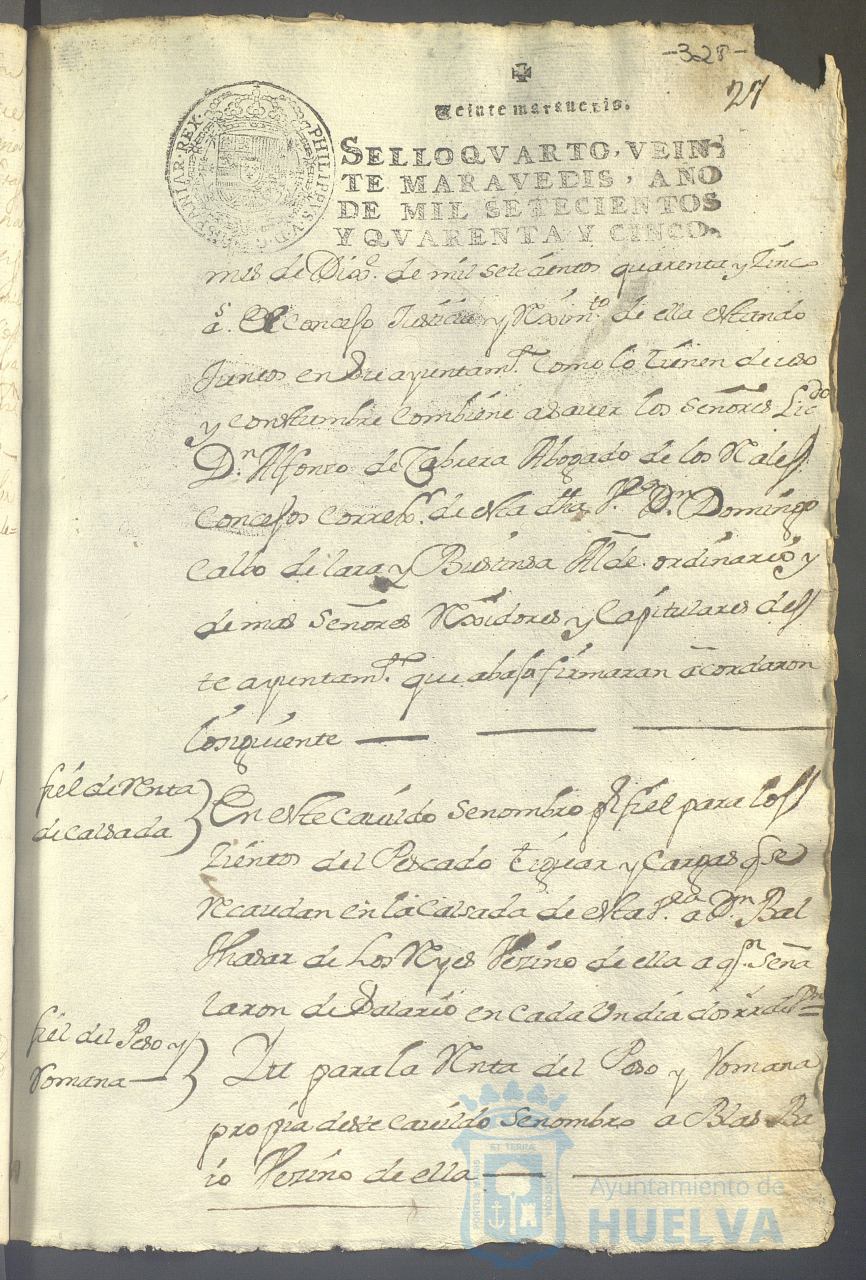 -328-
27
Veinte maravedis.
PHILIPPVS·V·D·G· HISPANIAR·REX·
SELLO QVARTO, VEIN-
TE MARAVEDIS, AÑO
DE MIL SETECIENTOS
Y QVARENTA Y CINCO.
mes de Dizº. de mil setecientos quarenta y Zinco
as. El Concejo Justicia y Reximto. de ella estando
Juntos en su ayuntamto. Como lo tienen de uso
y constumbre combiene asaver los señores Licdo
Dn Alfonso de Cabrera Abogado de los Reales
Concejos correxr. de esta dha Va. Dn Domingo
Calbo de lara y Bustinsa Alde. ordinario y
demas Señores Rexidores y Capitulares des
te ayuntamto. que abajo firmaran acordaron
losiguiente
fiel de Renta
de calsada
En este cavildo se nombro pr fiel para los
Zientos del Pescado y Cargas qe. se
Recaudan en la Calsada de esta Va. a Dn Bal
thasar de los Reyes Vezino de ella a qn. Seña
laron de Salario en cada Un dia dos rrs de Vn
fiel del Peso y
Romana
Itt para la Renta del Peso y Romana
propia deste cavildo se nombro a Blas Ba
io Vezino de ella
ET TERRA
Ayuntamiento de
HUELVA